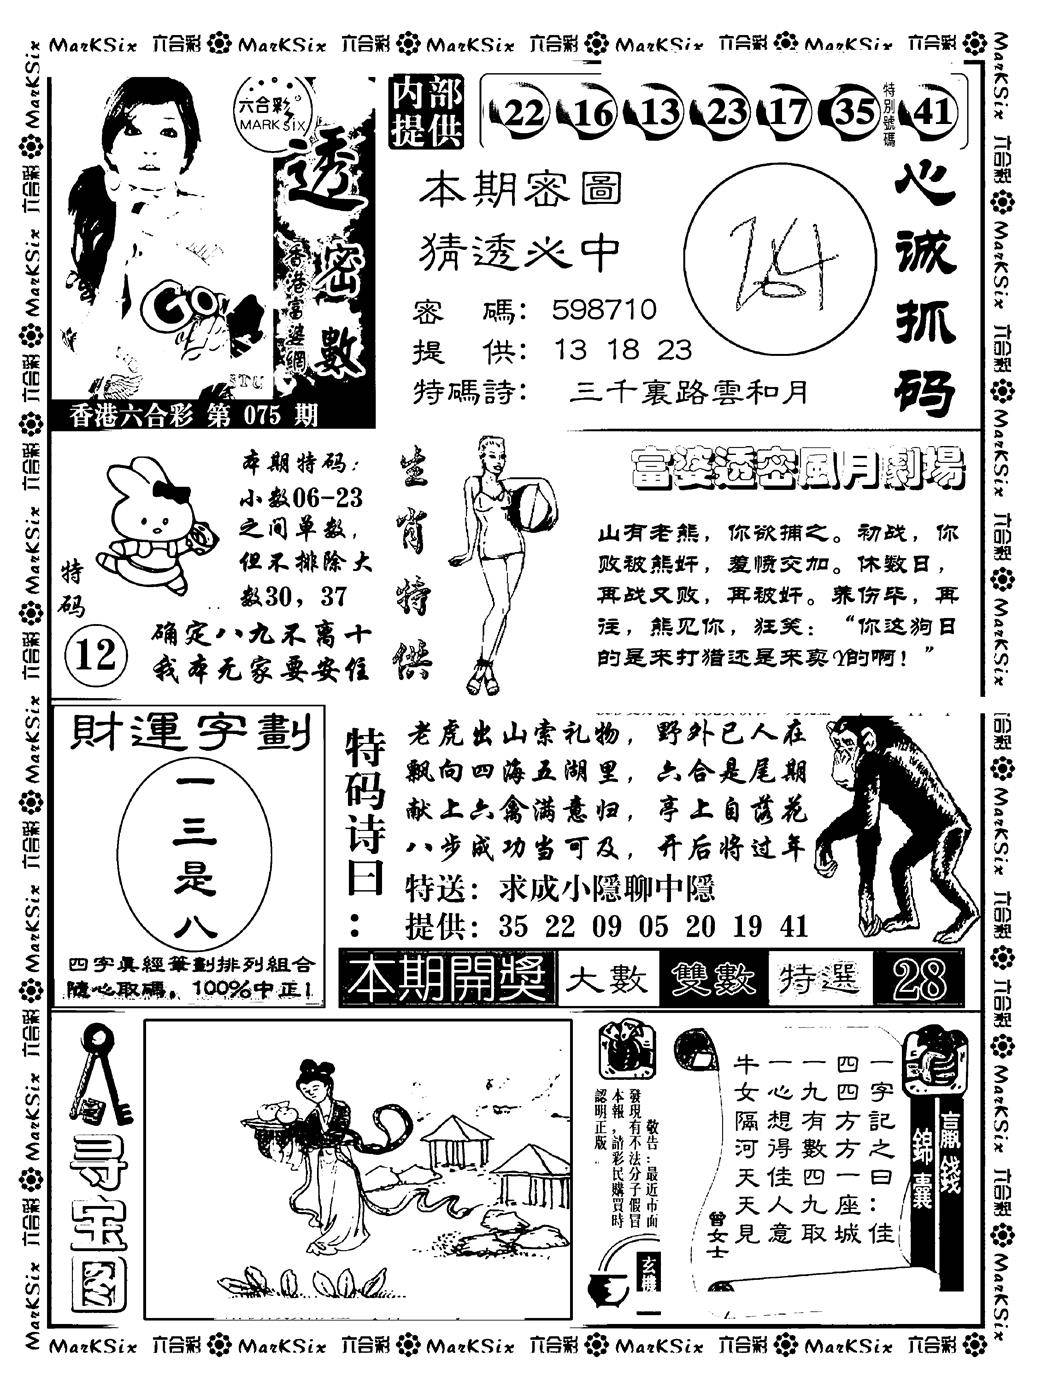 MarKSix 六合彩 MarKSix 六合彩 MarKSix 六合彩 MarKSix 六合彩 MarKSix 六合彩
六合彩
MARK SIX
透密數
香港富婆網
香港六合彩 第 075 期
内部
提供
22 16 13 23 17 35
特別號碼
41
本期密圖
猜透必中
密 碼: 598710
提 供: 13 18 23
特碼詩: 三千裏路雲和月
心诚抓码
特码
12
本期特码:
小数06-23
之间单数,
但不排除大
数30, 37
确定八九不离十
我本无家要安住
生肖特供
富婆透密風月劇場
山有老熊，你欲捕之。初战，你
败被熊奸，羞愤交加。休数日，
再战又败，再被奸。养伤毕，再
往，熊见你，狂笑：“你这狗日
的是来打猎还是来卖Y的啊！”
財運字劃
一
三
是
八
四字真經筆劃排列組合
隨心取碼，100%中正!
特码诗曰:
老虎出山索礼物，野外已人在
飘向四海五湖里，六合是尾期
献上六禽满意归，亭上自落花
八步成功当可及，开后将过年
特送: 求成小隱聊中隱
提供: 35 22 09 05 20 19 41
本期開獎 大數 雙數 特選 28
寻宝图
敬告:最近市面
發現有不法分子假冒
本報,請彩民購買時
認明正版
玄機
贏錢
錦囊
一字記之曰:佳
四四方方一座城
一九有數四九取
一心想得佳人意
牛女隔河天天見
曾女士
MarKSix 六合彩 MarKSix 六合彩 MarKSix 六合彩 MarKSix 六合彩 MarKSix 六合彩